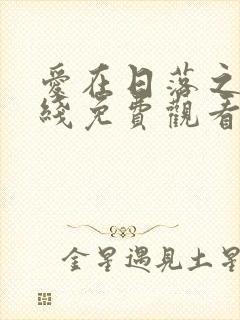 愛在日落之
綫免費觀看
金星遇見土星